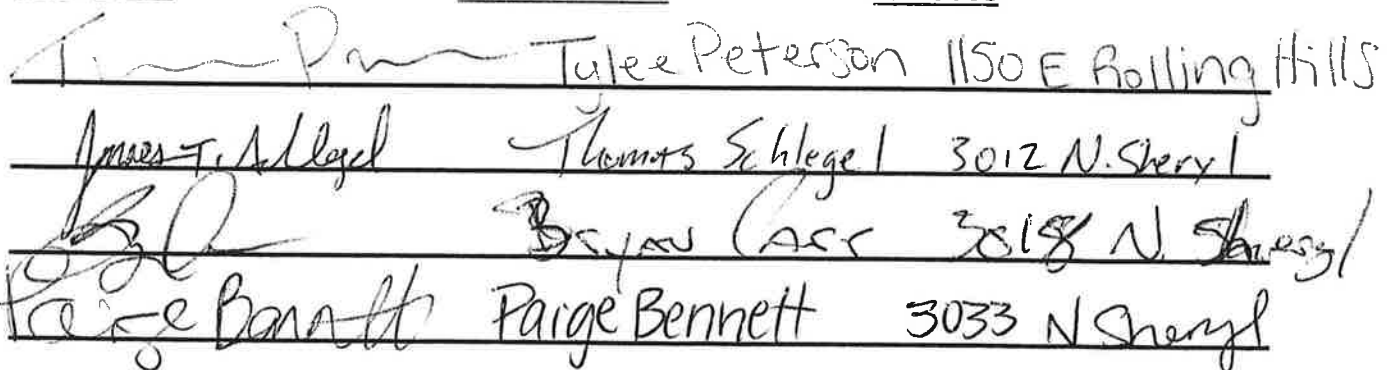 Tylee Peterson 1150 E Rolling Hills
James T. Schlegel Thomas Schlegel 3012 N. Sheryl
Bryan Carr 3018 N. Sheryl
Paige Bennett Paige Bennett 3033 N Sheryl